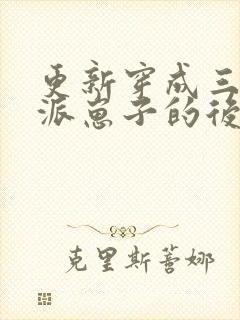 更新穿成三
派崽子的後
克里斯蒂娜